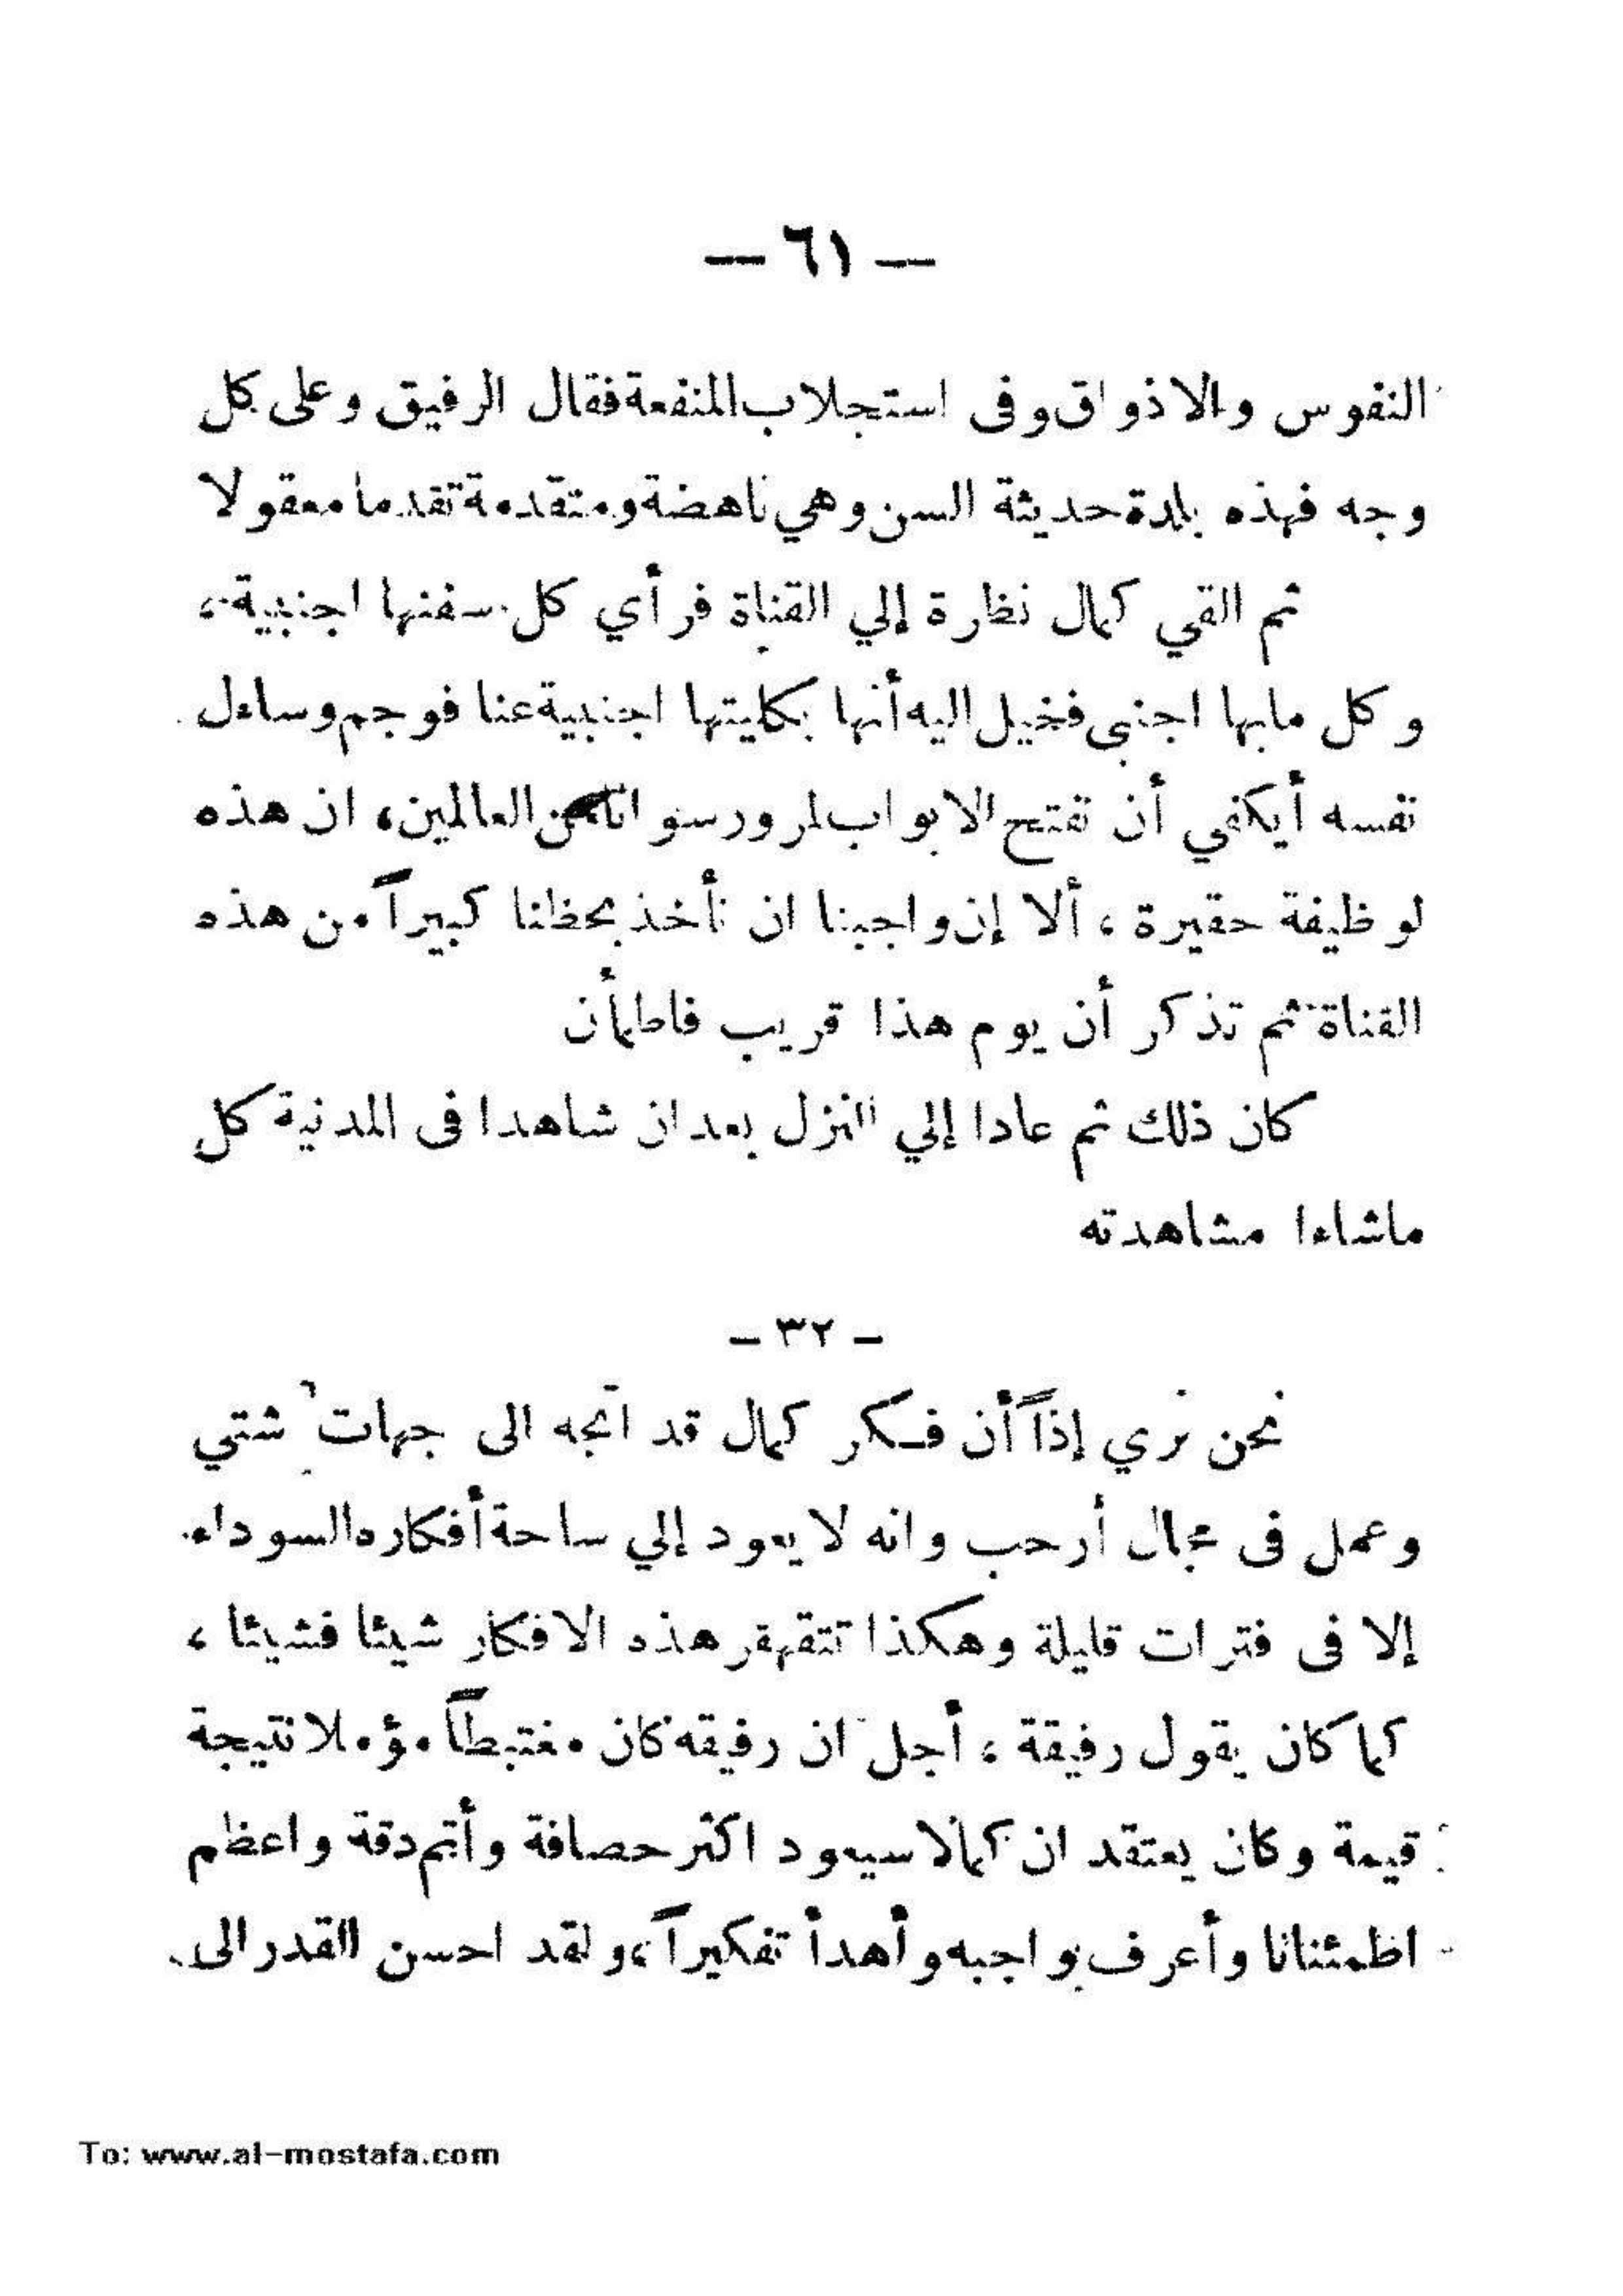 — ٦١ —
النفوس والاذواق وفى استجلاب المنفعة فقال الرفيق وعلى كل
وجه فهذه بلدة حديثة السن وهي ناهضة ومتقدمة تقدما معقولا
ثم القي كمال نظارة إلي القناة فرأي كل سفنها اجنبية ،
وكل مابها اجنبى فخيل اليه أنها بكليتها اجنبية عنا فوجم وساءل
نفسه أيكفي أن تفتح الابواب لمرور سوانا من العالمين، ان هذه
لوظيفة حقيرة ، ألا إن واجبنا ان نأخذ بحظنا كبيراً من هذه
القناة ثم تذكر أن يوم هذا قريب فاطمأن
كان ذلك ثم عادا إلي النزل بعد ان شاهدا فى المدنية كل
ماشاءا مشاهدته
- ٣٢ -
نحن نري إذاً أن فكر كمال قد اتجه الى جهات شتي
وعمل فى مجال أرحب وانه لا يعود إلي ساحة أفكاره السوداء
إلا فى فترات قليلة وهكذا تتقهقر هذه الافكار شيئا فشيئا ،
كما كان يقول رفيقة ، أجل ان رفيقه كان مغتبطاً مؤملا نتيجة
قيمة وكان يعتقد ان كمالا سيعود اكثر حصافة وأتم دقة واعظم
اظمئنانا وأعرف بواجبه وأهدأ تفكيراً ، ولقد احسن القدر الى
To: www.al-mostafa.com